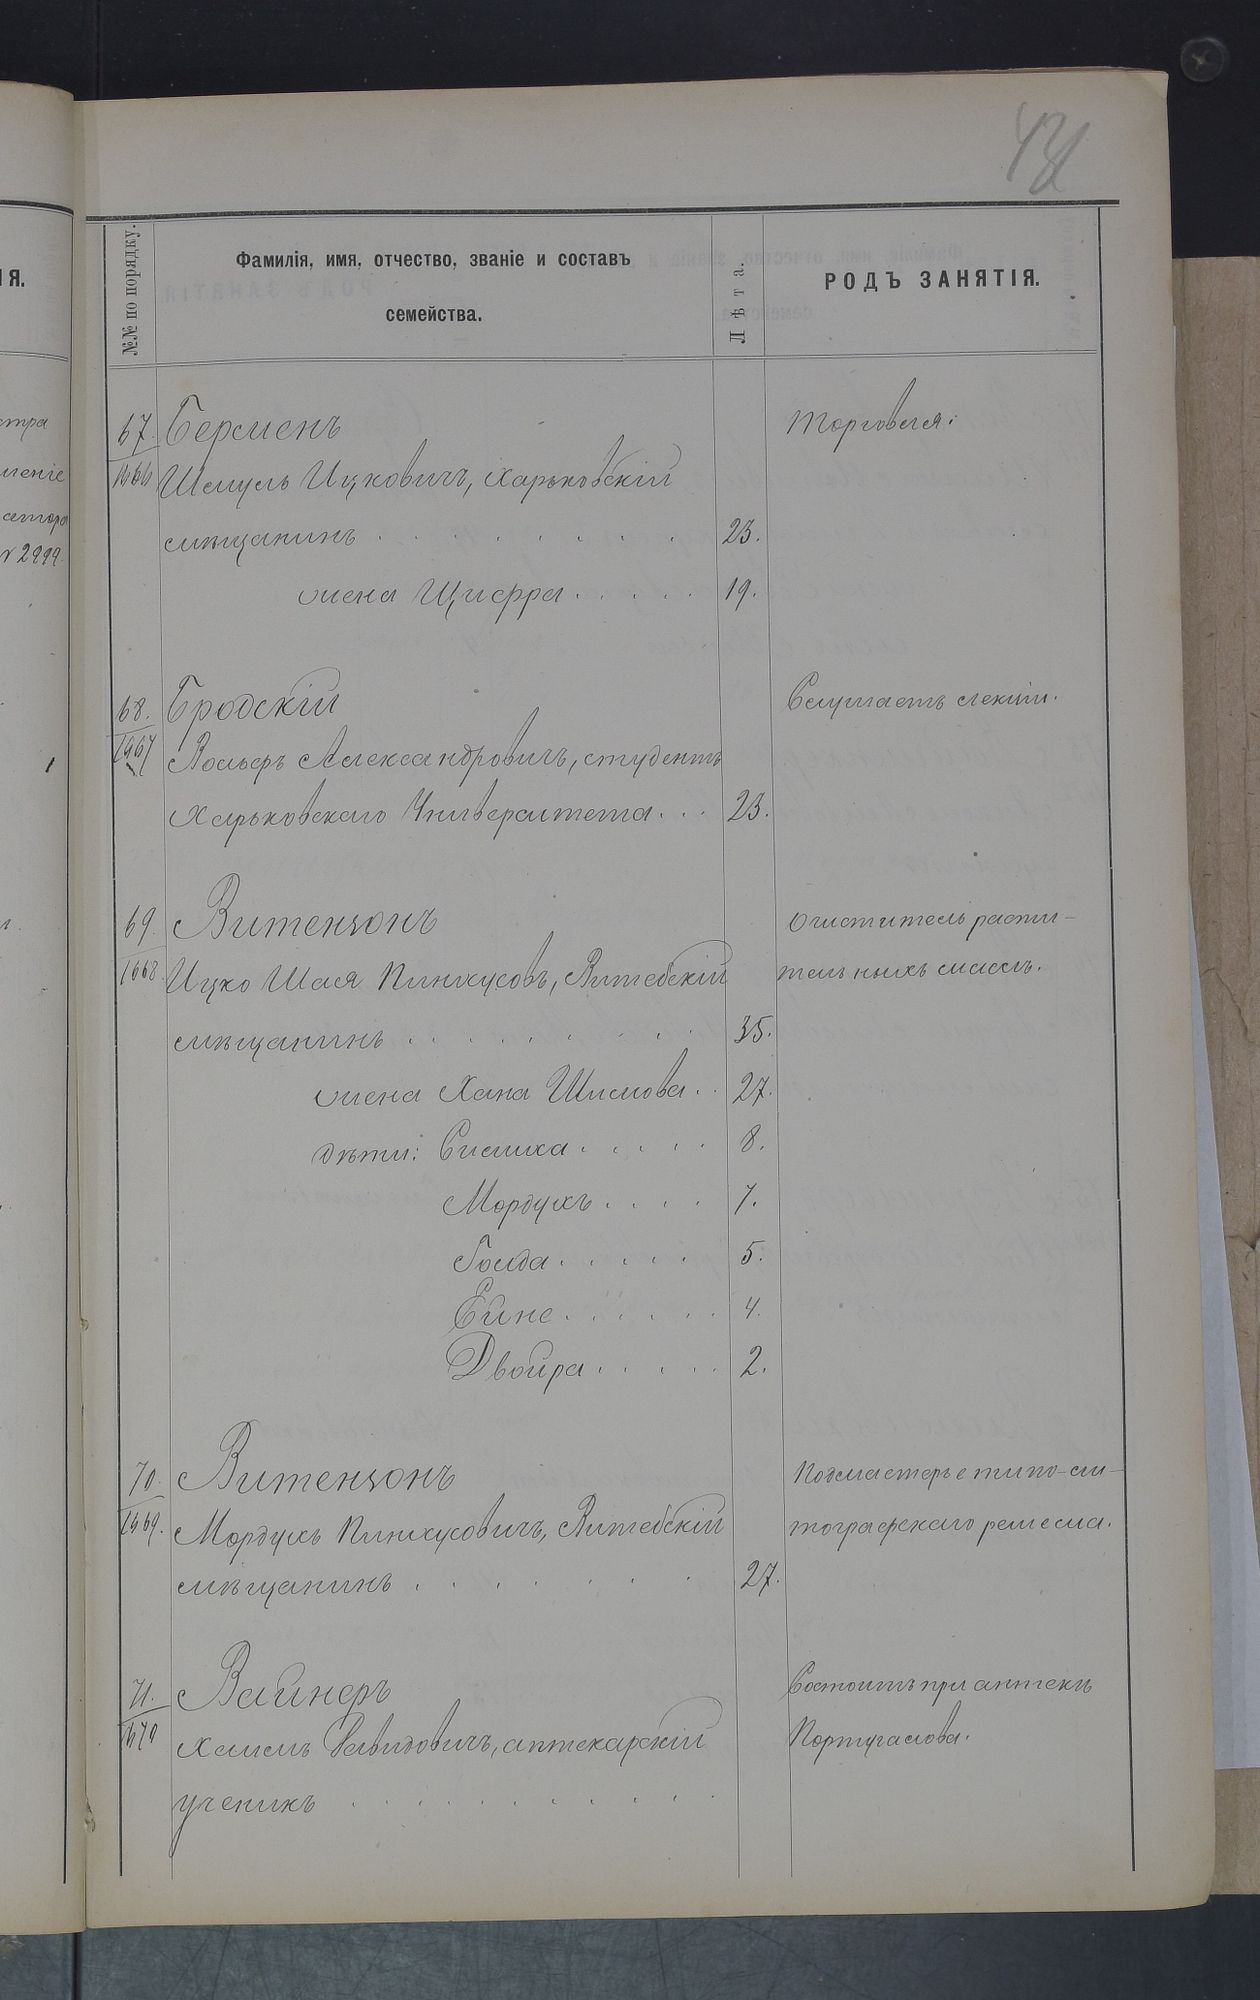 №№ по порядку.
Фамилія, имя, отчество, званіе и составъ
семейства.
Лѣта.
РОДЪ ЗАНЯТІЯ.
67. Берменъ Торговля.
1666 Шмуль Ицковичъ, Харьковскій
мѣщанинъ . . . . . . . . 23.
жена Шифра . . . . . 19.
68. Бродскій Слушаетъ лекціи.
1667 Вольфъ Александровичъ, студентъ
Харьковскаго Университета . . . 23.
69. Витензонъ Очиститель расти-
1668 Ицко Шая Пинхусовъ, Витебскій тельныхъ маслъ.
мѣщанинъ . . . . . . . . 35.
жена Хана Шимова . . 27.
дѣти: Симха . . . . . 8.
Мордухъ . . . . 7.
Голда . . . . . 5.
Ейне . . . . . . 4.
Двойра . . . . . 2.
70. Витензонъ Подмастерье типо-ли-
1669. Мордухъ Пинхусовичъ, Витебскій тографскаго ремесла.
мѣщанинъ . . . . . . . 27.
71. Вайнеръ Состоитъ при аптекѣ
1670 Хаимъ Давидовичъ, аптекарскій Португалова.
ученикъ . . . . . . . . . . .
ІЯ.
№ 2999.